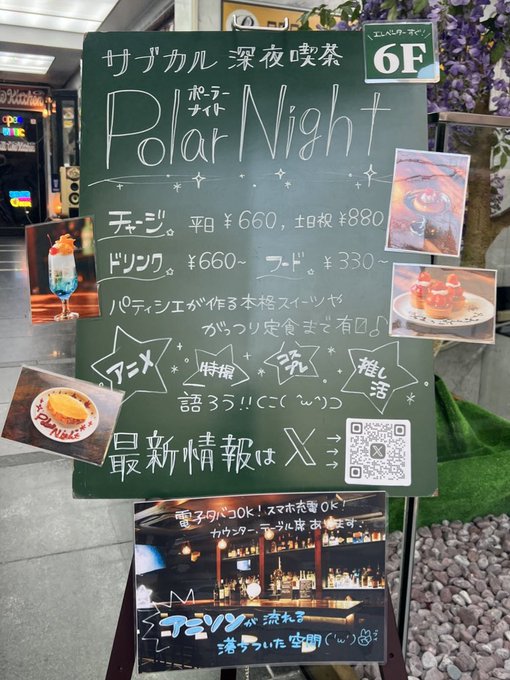 サブカル 深夜喫茶
エレベーターすぐ!
6F
ポーラー
ナイト
Polar Night
チャージ 平日 ¥660, 土日祝 ¥880
ドリンク ¥660~ フード ¥330~
パティシエが作る本格スイーツや
がっつり定食まで有♪
アニメ
特撮
コスプレ
推し活
語ろう!!(こ( 'ω')つ
最新情報は X →
電子タバコOK! スマホ充電OK!
カウンター、テーブル席あります.
アニソンが流れる
落ちついた空間('ω')
open